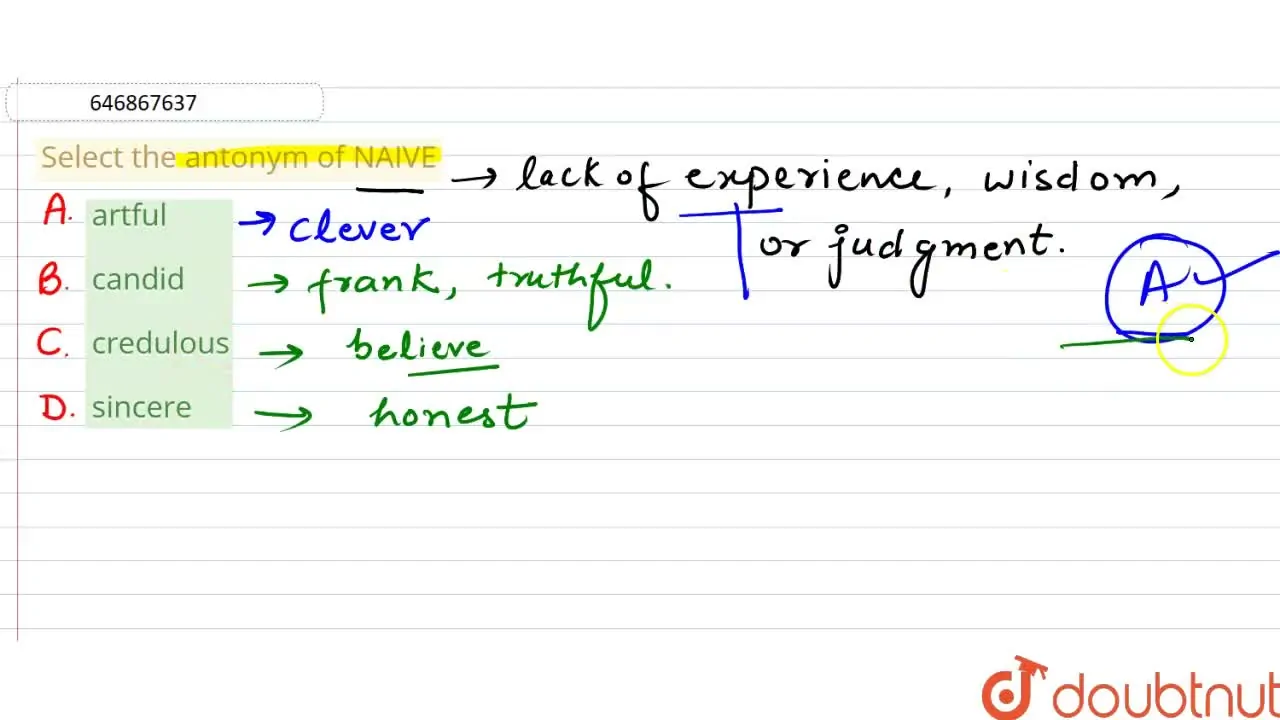 646867637
Select the antonym of NAIVE → lack of experience, wisdom,
or judgment.
A. artful → clever
B. candid → frank, truthful.
C. credulous → believe
D. sincere → honest
A
doubtnut